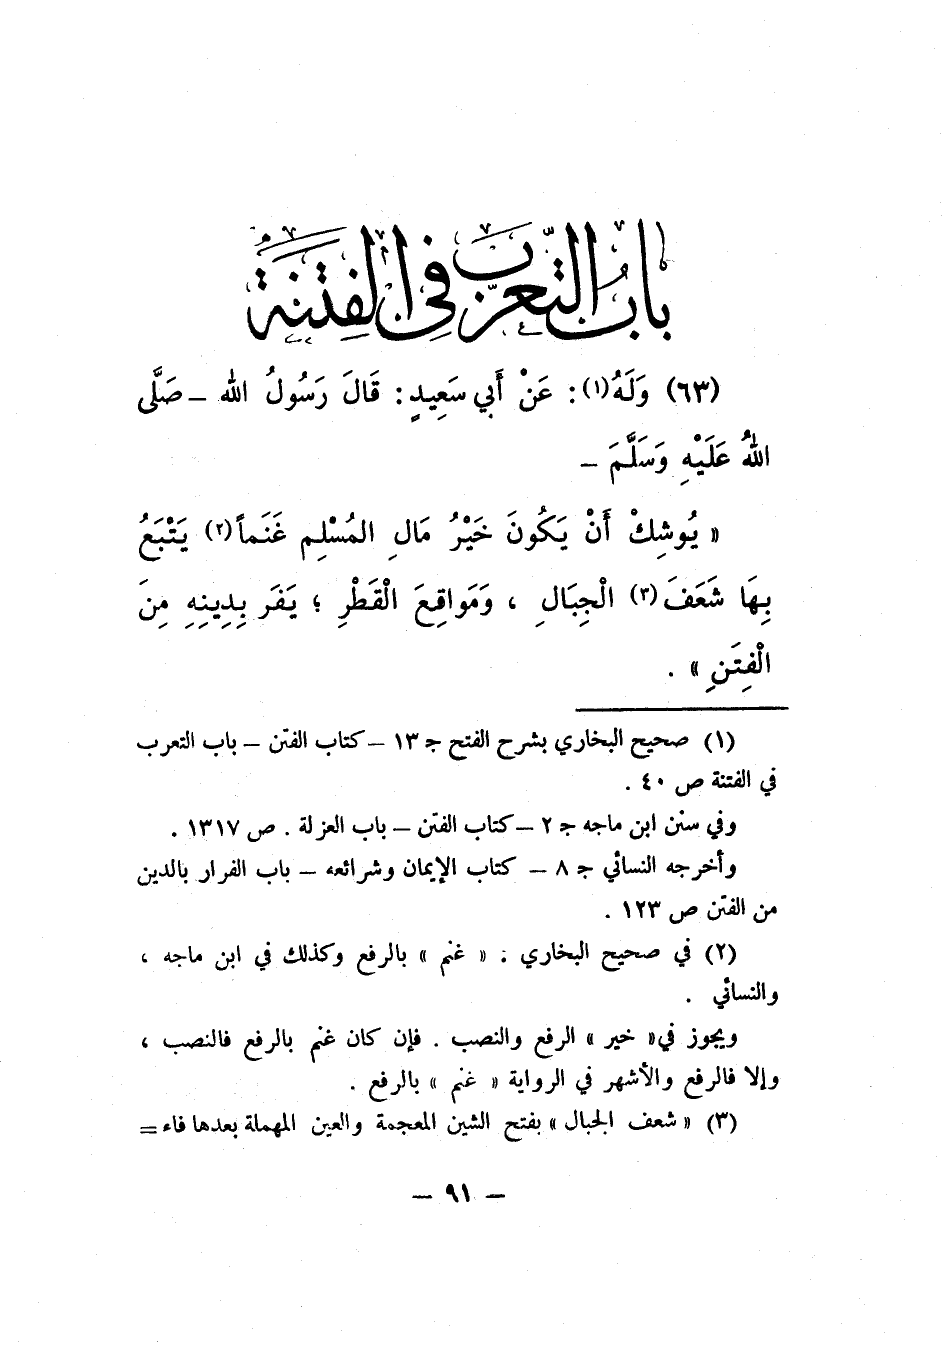 بَابُ التَّعَرُّبِ فِي الْفِتْنَةِ
(٦٣) وَلَهُ(١): عَنْ أَبي سَعِيدٍ: قَالَ رَسُولُ الله ــ صَلَّى
اللهُ عَلَيْهِ وَسَلَّمَ ــ
« يُوشِكْ أَنْ يَكُونَ خَيْرُ مَالِ المُسْلِمِ غَنَماً(٢) يَتْبَعُ
بِهَا شَعَفَ(٣) الْجِبَالِ ، وَمَواقِعَ الْقَطْرِ ؛ يَفَر بِدِينِهِ مِنَ
الْفِتَنِ » .
(١) صحيح البخاري بشرح الفتح جـ ١٣ ــ كتاب الفتن ــ باب التعرب
في الفتنة ص ٤٠ .
وفي سنن ابن ماجه جـ ٢ ــ كتاب الفتن ــ باب العزلة . ص ١٣١٧ .
وأخرجه النسائي جـ ٨ ــ كتاب الإيمان وشرائعه ــ باب الفرار بالدين
من الفتن ص ١٢٣ .
(٢) في صحيح البخاري : « غنم » بالرفع وكذلك في ابن ماجه ،
والنسائي .
ويجوز في « خير » الرفع والنصب . فإن كان غنم بالرفع فالنصب ،
وإلا فالرفع والأشهر في الرواية « غنم » بالرفع .
(٣) « شعف الجبال » بفتح الشين المعجمة والعين المهملة بعدها فاء =
ــ ٩١ ــ